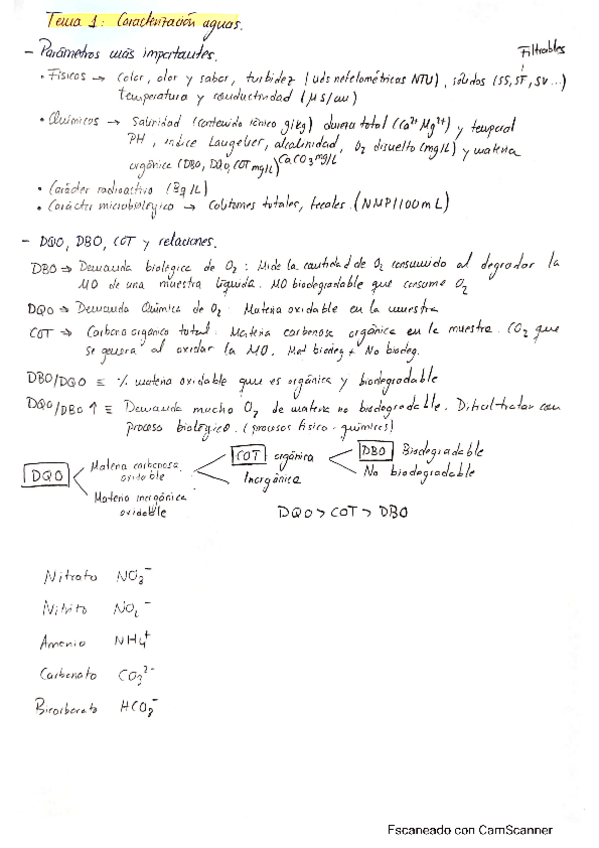 Tema 1: Caracterización aguas.
- Parámetros más importantes.
Filtrables
• Físicos → color, olor y sabor, turbidez (uds nefelométricas NTU), sólidos (SS, ST, SV...)
temperatura y conductividad (µS/cm)
• Químicos → Salinidad (contenido iónico g/kg) dureza total (Ca²⁺ Mg²⁺) y temporal
PH, indice Laugelier, alcalinidad, O₂ disuelto (mg/L) y materia
CaCO₃ mg/L
orgánica (DBO, DQO, COT mg/L)
• Carácter radioactivo (Bq/L)
• Carácter microbiológico → coliformes totales, fecales. (NMP/100mL)
- DQO, DBO, COT y relaciones.
DBO → Demanda biológica de O₂ : Mide la cantidad de O₂ consumido al degradar la
MO de una muestra líquida. MO biodegradable que consume O₂
DQO → Demanda Química de O₂. Materia oxidable en la muestra
COT → Carbono orgánico total. Materia carbonosa orgánica en la muestra. CO₂ que
se genera al oxidar la MO. Mat biodeg + No biodeg.
DBO/DQO ≡ % materia oxidable que es orgánica y biodegradable
DQO/DBO ↑ ≡ Demanda mucho O₂ de materia no biodegradable. Dificil tratar con
proceso biológico. (procesos físico-químicos)
DQO
Materia carbonosa oxidable
COT orgánica
DBO Biodegradable
No biodegradable
Inorgánica
Materia inorgánica oxidable
DQO > COT > DBO
Nitrato NO₃⁻
Nitrito NO₂⁻
Amonio NH₄⁺
Carbonato CO₃²⁻
Bicarbonato HCO₃⁻
Escaneado con CamScanner